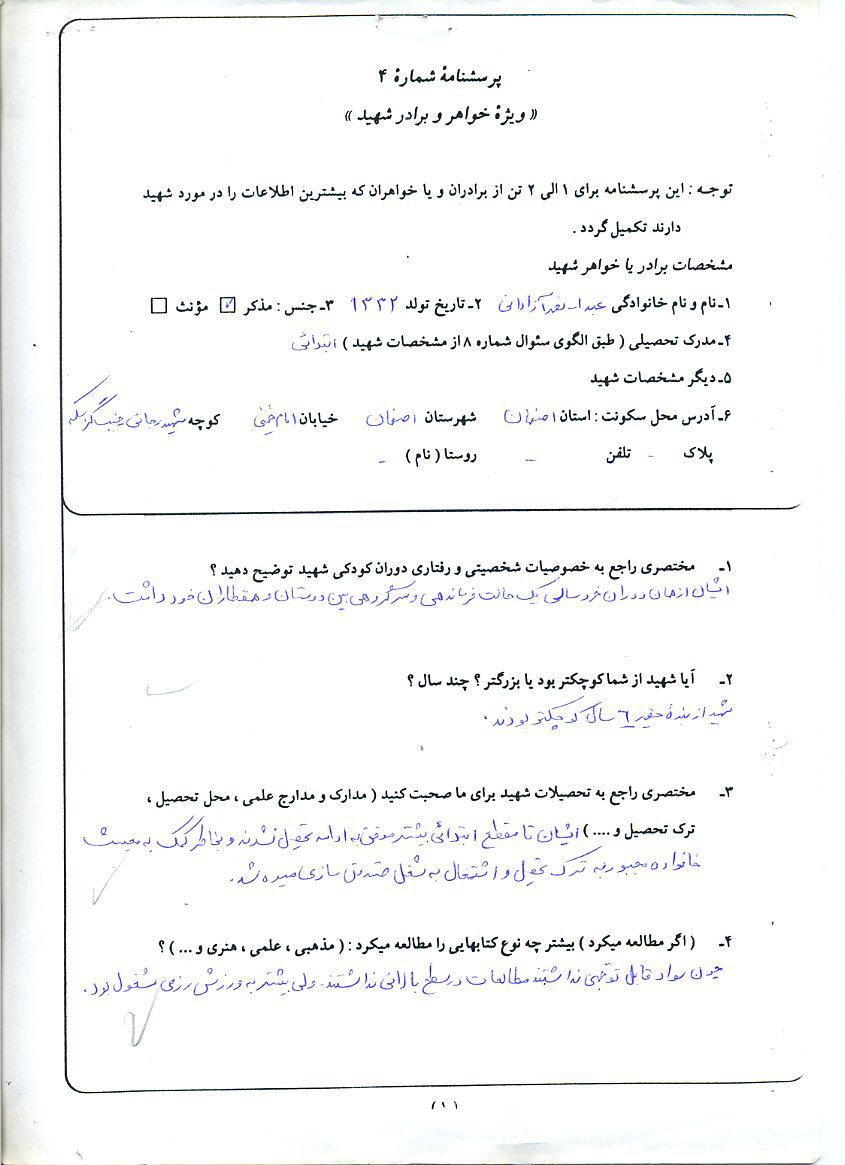 پرسشنامهٔ شمارهٔ ۴
« ویژهٔ خواهر و برادر شهید »
توجـه : این پرسشنامه برای ۱ الی ۲ تن از برادران و یا خواهران که بیشترین اطلاعات را در مورد شهید
دارند تکمیل گردد .
مشخصات برادر یا خواهر شهید
۱ـ نام و نام خانوادگی ۲ـ تاریخ تولد ۱۳۳۲ ۳ـ جنس : مذکر مؤنث
۴ـ مدرک تحصیلی ( طبق الگوی سئوال شماره ۸ از مشخصات شهید ) ابتدائی
۵ـ دیگر مشخصات شهید
۶ـ آدرس محل سکونت : استان اصفهان شهرستان اصفهان خیابان امام خمینی کوچه شهید رجائی
پلاک - تلفن - روستا ( نام ) -
۱ـ مختصری راجع به خصوصیات شخصیتی و رفتاری دوران کودکی شهید توضیح دهید ؟
ایشان از همان دوران خردسالی یک حالت فرماندهی و سرگروهی بین دوستان و همقطاران خود داشت .
۲ـ آیا شهید از شما کوچکتر بود یا بزرگتر ؟ چند سال ؟
شهید از بنده حقیر ٦ سال کوچکتر بودند .
۳ـ مختصری راجع به تحصیلات شهید برای ما صحبت کنید ( مدارک و مدارج علمی ، محل تحصیل ،
ترک تحصیل و .... ) ایشان تا مقطع ابتدائی بیشتر موفق به ادامه تحصیل نشدند و بخاطر کمک به معیشت
خانواده مجبور به ترک تحصیل و اشتغال به شغل صندوق سازی میوه شد .
۴ـ ( اگر مطالعه میکرد ) بیشتر چه نوع کتابهایی را مطالعه میکرد : ( مذهبی ، علمی ، هنری و ... ) ؟
چون سواد قابل توجهی نداشتند مطالعات در سطح بالائی نداشتند ولی بیشتر به ورزش رزمی مشغول بود .